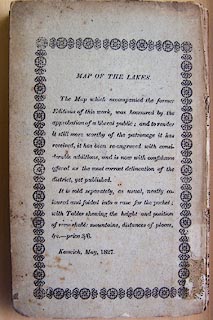 MAP OF THE LAKES.
The Map which accompanied the former
Editions of this work, was honoured by the
approbation of a liberal public; and to render
it still more worthy of the patronage it has
received, it has been re-engraved with consi-
derable additions, and is now with confidence
offered as the most correct delineation of the
district, yet published.
It is sold separately, as usual, neatly co-
loured and folded into a case for the pocket;
with Tables shewing the height and position
of remarkable mountains, distances of places,
&c.—price
Keswick, May, 1827.